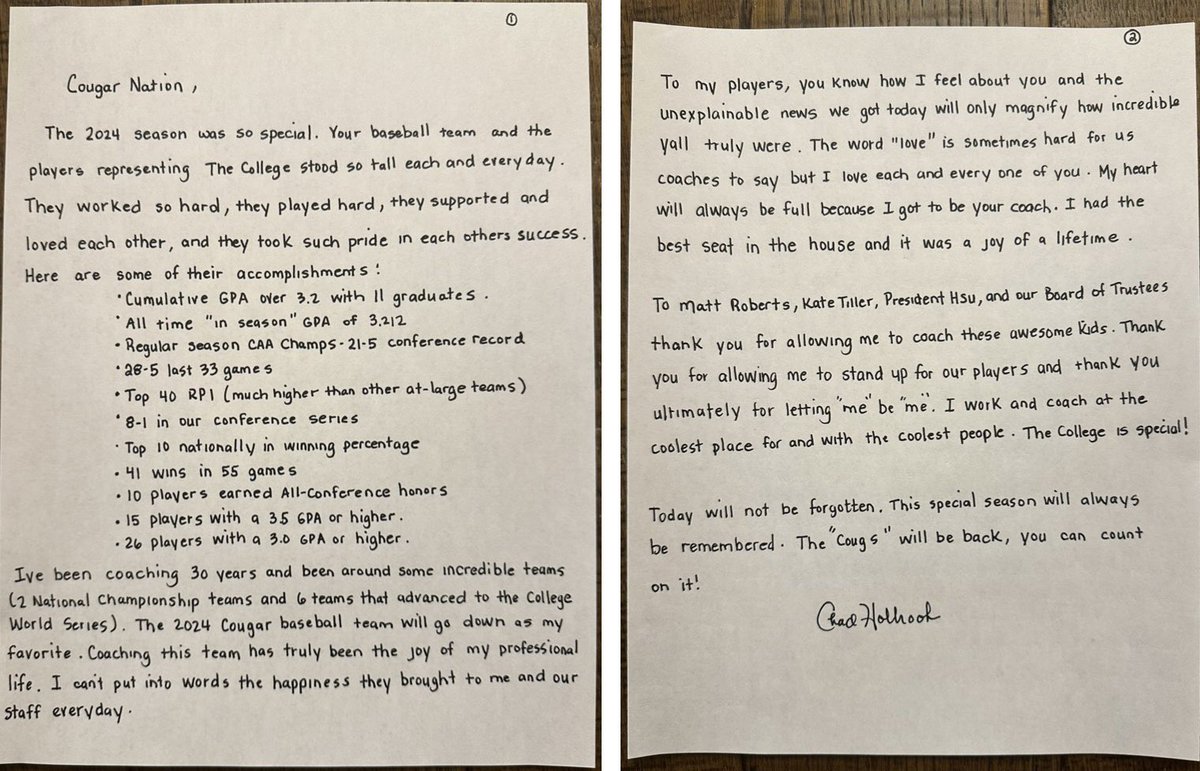 ①
Cougar Nation,
The 2024 season was so special. Your baseball team and the
players representing The College stood so tall each and everyday.
They worked so hard, they played hard, they supported and
loved each other, and they took such pride in each others success.
Here are some of their accomplishments!
• Cumulative GPA over 3.2 with 11 graduates.
• All time "in season" GPA of 3.212
• Regular season CAA Champs - 21-5 conference record
• 28-5 last 33 games
• Top 40 RPI (much higher than other at-large teams)
• 8-1 in our conference series
• Top 10 nationally in winning percentage
• 41 wins in 55 games
• 10 players earned All-Conference honors
• 15 players with a 3.5 GPA or higher.
• 26 players with a 3.0 GPA or higher.
Ive been coaching 30 years and been around some incredible teams
(2 National Championship teams and 6 teams that advanced to the College
World Series). The 2024 Cougar baseball team will go down as my
favorite. Coaching this team has truly been the joy of my professional
life. I can't put into words the happiness they brought to me and our
staff everyday.
②
To my players, you know how I feel about you and the
unexplainable news we got today will only magnify how incredible
yall truly were. The word "love" is sometimes hard for us
coaches to say but I love each and every one of you. My heart
will always be full because I got to be your coach. I had the
best seat in the house and it was a joy of a lifetime.
To Matt Roberts, Kate Tiller, President Hsu, and our Board of Trustees
thank you for allowing me to coach these awesome kids. Thank
you for allowing me to stand up for our players and thank you
ultimately for letting "me" be "me". I work and coach at the
coolest place for and with the coolest people. The College is special!
Today will not be forgotten. This special season will always
be remembered. The "Cougs" will be back, you can count
on it!
Chad Holbrook